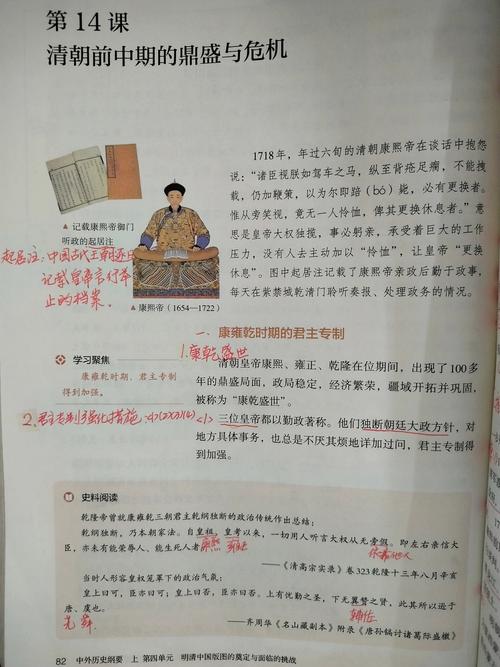 第 14 课
清朝前中期的鼎盛与危机
1718年，年过六旬的清朝康熙帝在谈话中抱怨
说：“诸臣视朕如驾车之马，纵至背疮足瘸，不能拽
载，仍加鞭策，以为尔即踣（bó）毙，必有更换者。
惟从旁笑视，竟无一人怜恤，俾其更换休息者。”意
思是皇帝大权独揽，事必躬亲，承受着巨大的工作
压力，没有人去主动加以“怜恤”，让皇帝“更换
休息”。图中起居注记载了康熙帝亲政后勤于政事，
每天在紫禁城乾清门聆听奏报、处理政务的情况。
▲ 记载康熙帝御门
听政的起居注
起居注：中国古代王朝逐日
记载皇帝言行举
止的档案.
▲ 康熙帝（1654—1722）
一、康雍乾时期的君主专制
1.康乾盛世
学习聚焦
康雍乾时期，君主专制
得到加强。
清朝皇帝康熙、雍正、乾隆在位期间，出现了100多
年的鼎盛局面，政局稳定，经济繁荣，疆域开拓并巩固，
被称为“康乾盛世”。
2.君主专制强化措施
<1>
三位皇帝都以勤政著称。他们独断朝廷大政方针，对
地方具体事务，也总是不厌其烦地详加过问，君主专制得
到加强。
史料阅读
乾隆帝曾就康雍乾三朝君主乾纲独断的政治传统作出总结：
乾纲独断，乃本朝家法。自皇祖、皇考以来，一切用人听言大权从无旁假。即左右亲信大
臣，亦未有能荣辱人、能生死人者
康熙 雍正
——《清高宗实录》卷323乾隆十三年八月辛亥
当时人形容皇权笼罩下的政治气氛：
皇上曰可，臣亦曰可；皇上曰否，臣亦曰否。上有忧勤之圣，下无翼赞之贤，此其所以逊于
唐、虞也。
辅佐
尧 舜
——齐周华《名山藏副本》附录《唐孙镐讨诸葛际盛檄》
82 中外历史纲要 上 第四单元 明清中国版图的奠定与面临的挑战